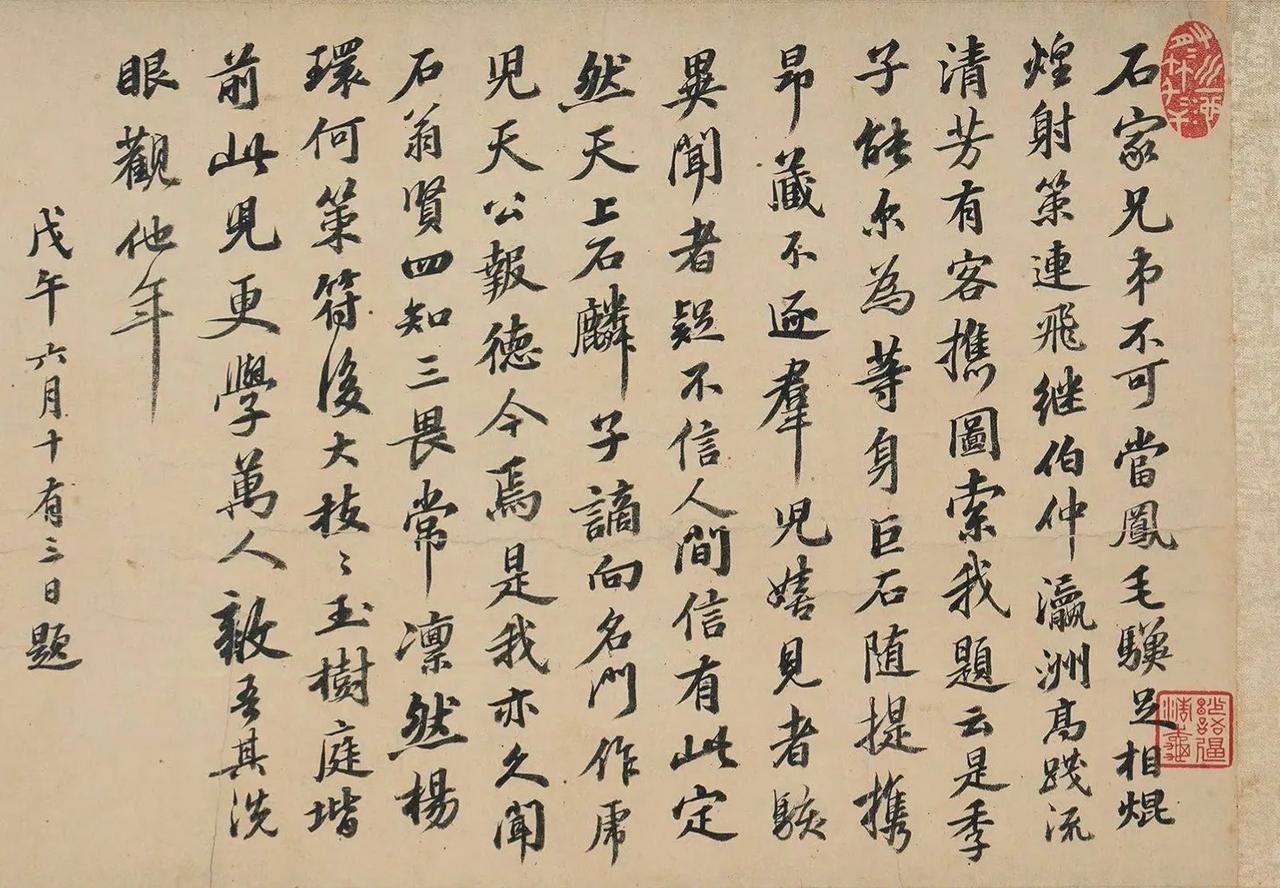 石家兄弟不可當鳳毛驥足相焜
煌射策連飛継伯仲瀛洲高踐流
清芳有客攜圖索我題云是季
子能尔為等身巨石随提攜
昂藏不逐羣児嬉見者駭
異聞者疑不信人間信有此定
然天上石麟子謫向名門作席
児天公報德今焉是我亦久聞
石翁賢四知三畏常凛然楊
環何策符後大枝〻玉樹庭堦
前此児更學萬人敵吾其洗
眼觀他年
戊午六月十有三日題